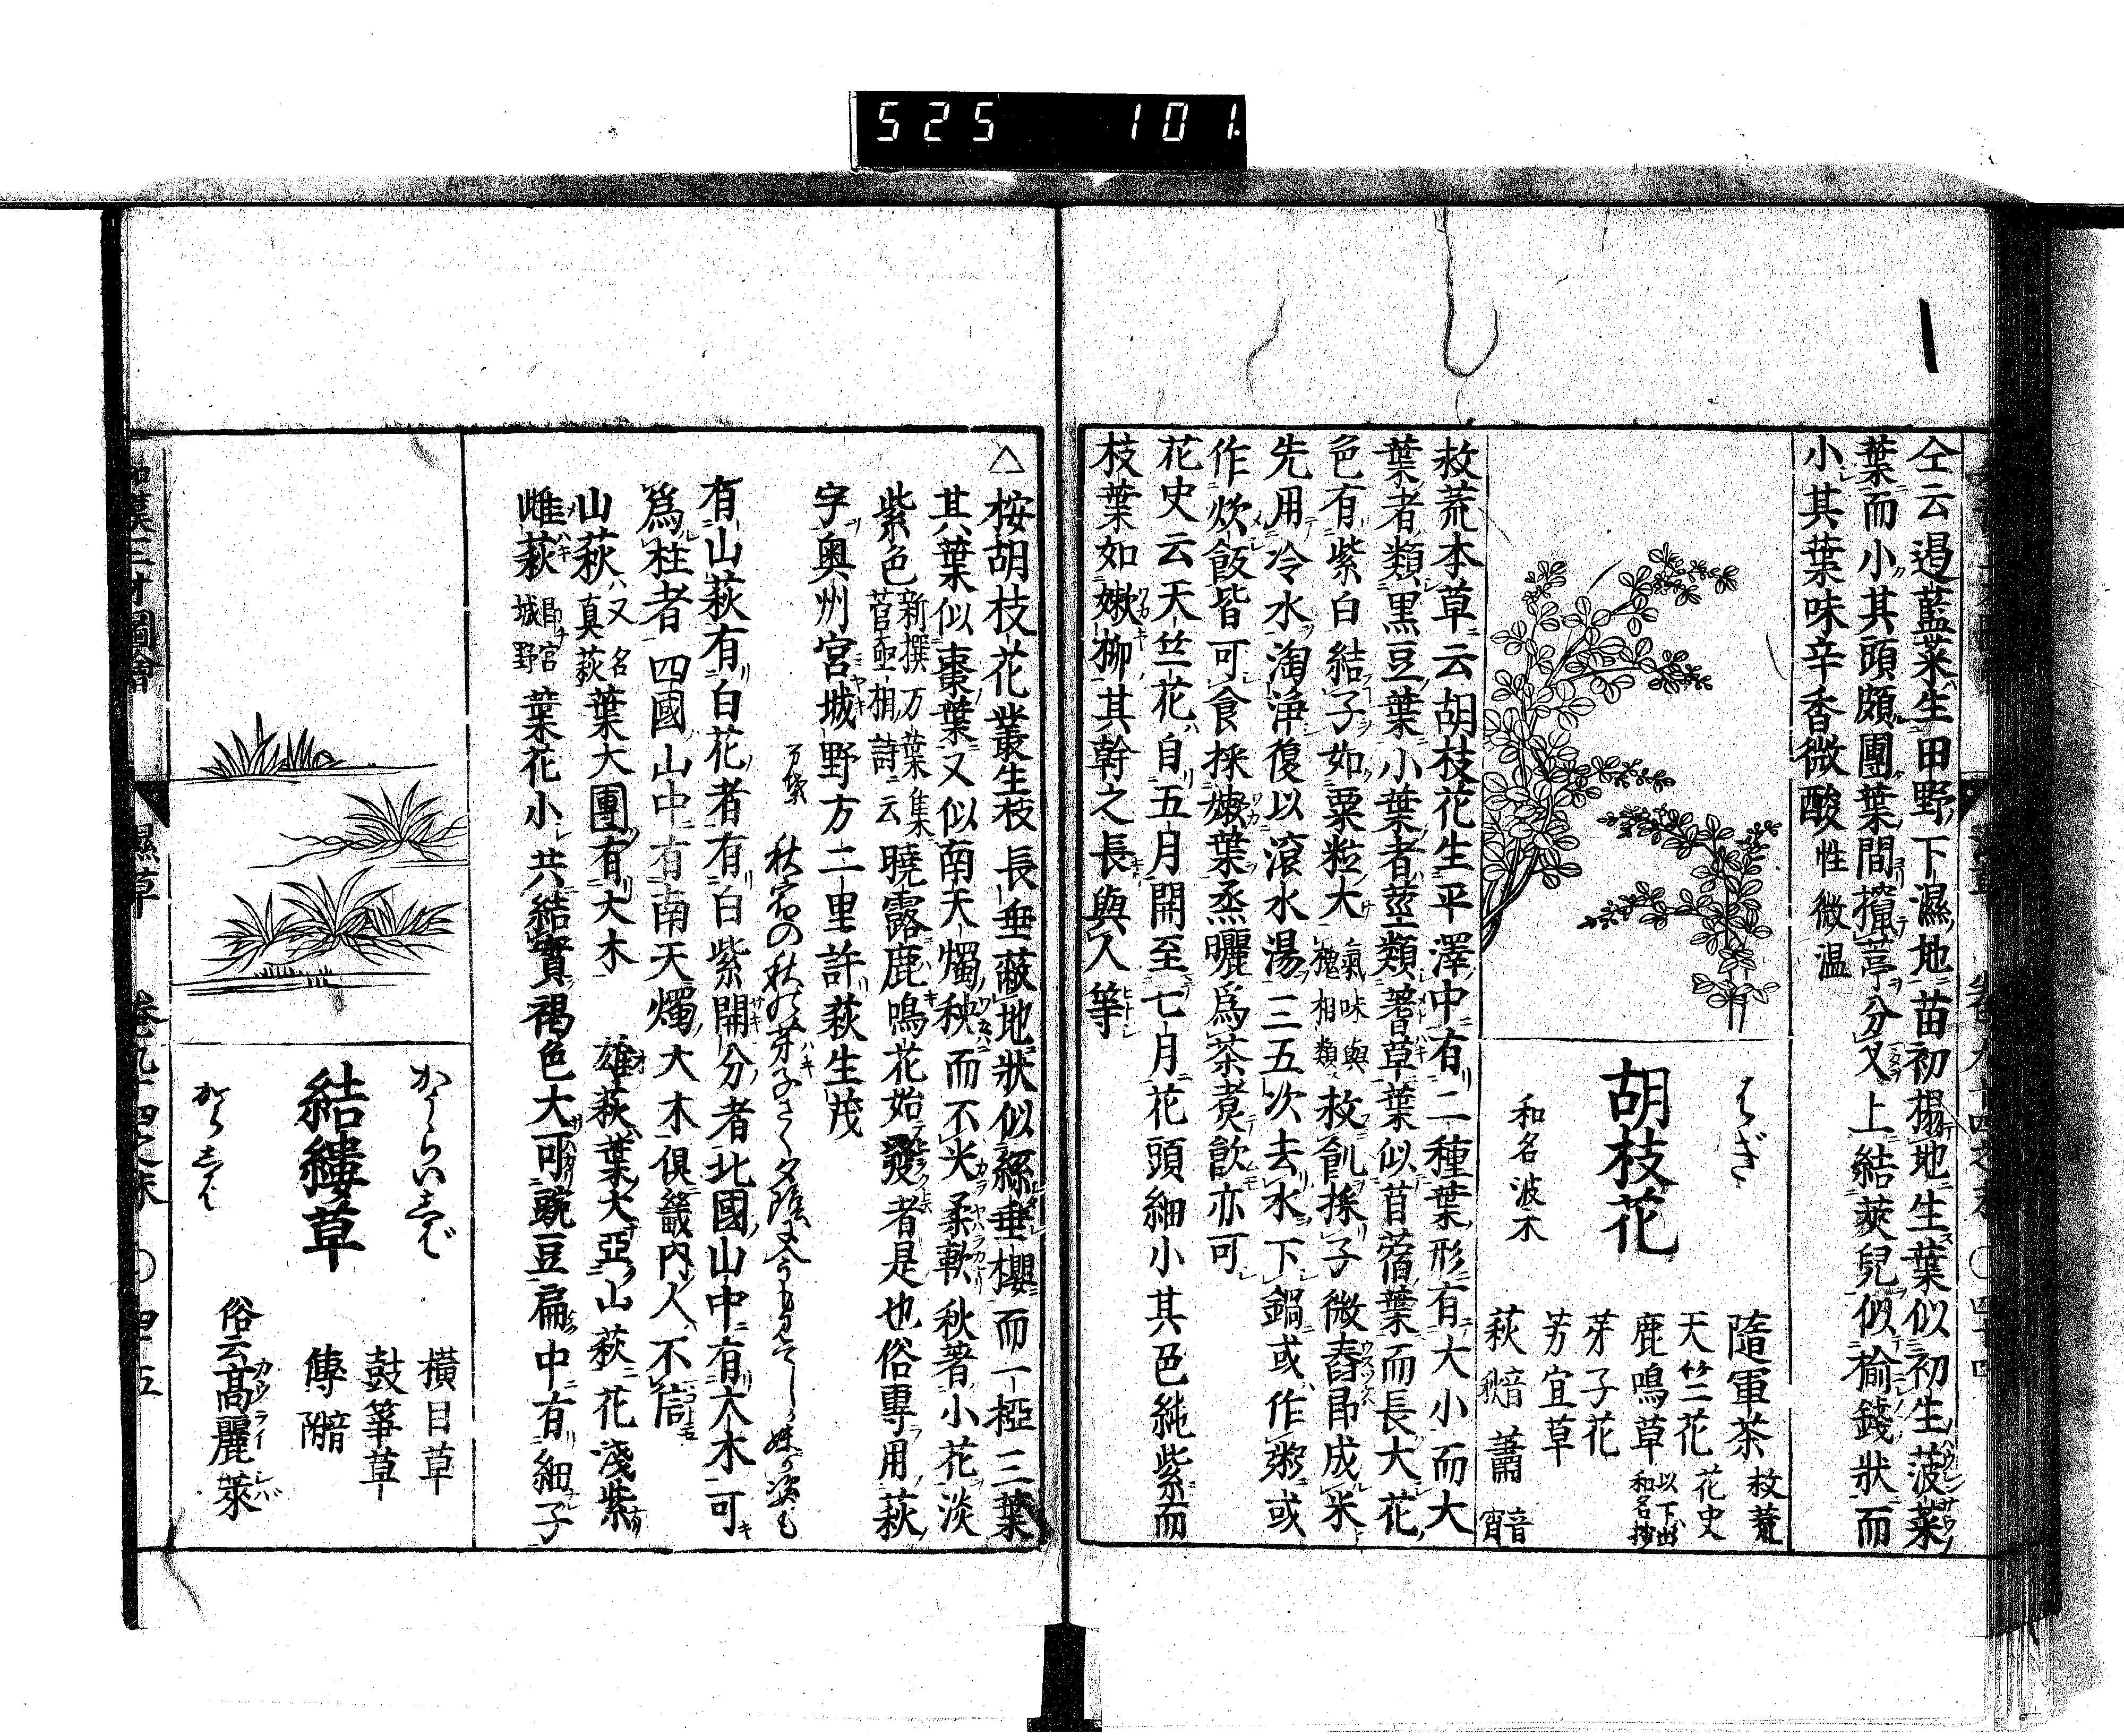 525 101
仝云遏藍菜生田野下濕地苗初搨地生葉似初生菠菜
葉而小其頭頗團葉間攛葶分叉上結莢兒似榆錢狀而
小其葉味辛香微酸性微温
はぎ
胡枝花
和名波木
隨軍茶 救荒
天竺花 花史
鹿鳴草 以下出和名抄
芽子花
芳宜草
萩 音秋 蕭 音宵
救荒本草云胡枝花生平澤中有二種葉形有大小而大
葉者類黒豆葉小葉者莖類蓍草葉似苜蓿葉而長大花
色有紫白結子如粟粒大 氣味與槐相類 救飢採子微舂即成米
先用冷水淘淨復以滾水湯三五次去水下鍋或作粥或
作炊飯皆可食採嫩葉烝曬爲茶煑飮亦可
花史云天竺花自五月開至七月花頭細小其色純紫而
枝葉如嫩柳其幹之長與人等
△桉胡枝花叢生枝長垂蔽地狀似絲垂櫻而一椏三葉
其葉似棗葉又似南天燭秧而不光柔軟秋著小花淡
紫色 新撰万葉集菅亟相詩云 曉露鹿鳴花始發者是也俗專用萩
字奥州宮城野方二里許萩生茂
有山萩有白花者有白紫開分者北國山中有大木可
爲柱者四國山中有南天燭大木俱畿内人不信
山萩 又名真萩 葉大團有大木 雄萩葉大亞山萩花淺紫
雌萩 即宮城野 葉花小共結實褐色大可豌豆扁中有細子
かうらいしば
結縷草
からしば
横目草
鼓箏草
傅 音附
俗云髙麗萊
和漢三才圖會 濕草 卷九十四之末 〇 四十五